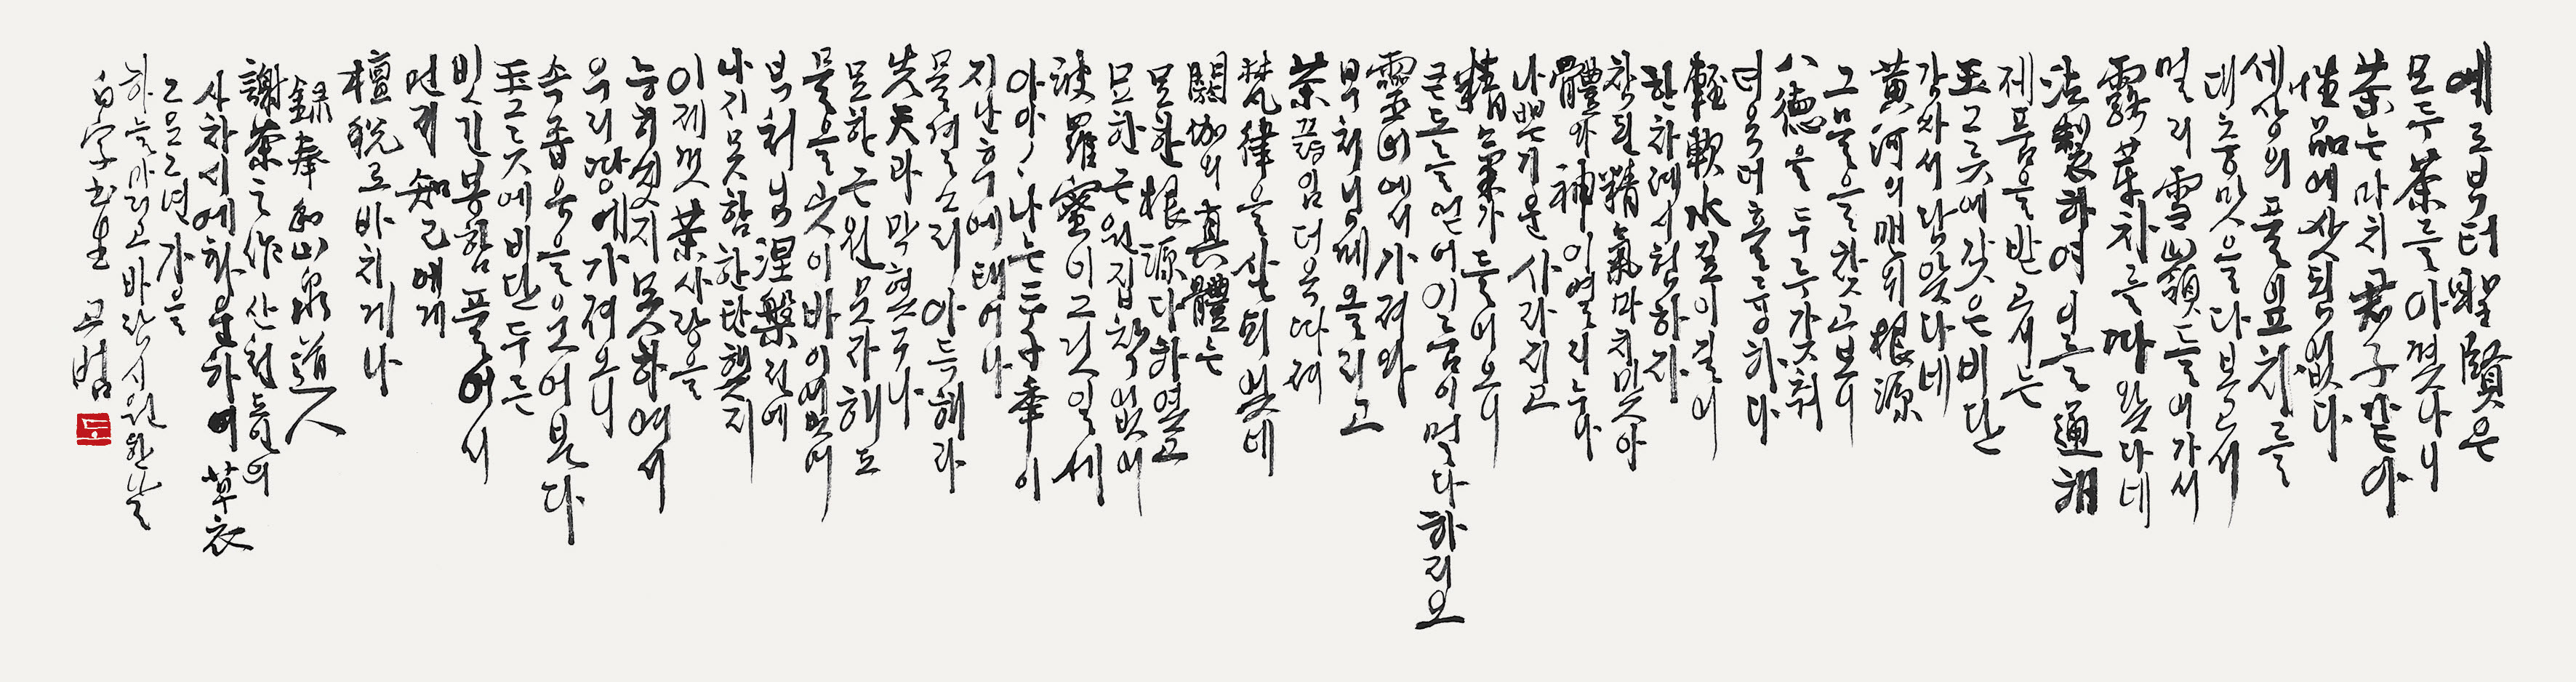 예로부터 聖賢은
모두 茶를 아꼈나니
茶는 마치 君子 같아
性品에 삿됨 없다
세상의 풀잎 차를
대충 맛을 다 보고서
멀리 雪山嶺 들어가서
露芽차를 따 왔다네
法製하여 이를 通해
제품을 받고서는
玉그릇에 갖은 비단
감싸서 담았다네
黃河의 맨 위 根源
그 물을 찾고 보니
八德을 두루 갖춰
더욱더 훌륭하다
輕軟水 깊이 길어
한차례 시험하자
참된 精氣 마치 맞아
體와 神이 열리누나
나쁜 기운 사라지고
精氣가 들어오니
큰 도를 얻어 이룸이 멀다 하리오
靈山에서 가져와
부처님께 올리고
茶 끓임 더욱 따져
梵律을 살폈네
閼伽의 眞體는
묘한 根源 다하였고
묘한 근원 집착 없어
波羅蜜이 그것일세
아아, 나는 三千年이
지난 후에 태어나
물결 소리 아득해라
先天과 막혔구나
묘한 근원 못 다해도
물을 곳이 바이 없어
부처님 涅槃 전에
나지 못함 한탄했지
이제껏 茶 사랑을
능히 씻지 못하여서
우리 땅에 가져오니
속 좁음을 웃어본다
玉그릇에 비단 두른
빗긴 봉함 풀어서
먼저 知己에게
檀稅로 바치게나
錄奉和山泉道人
謝茶之作 산천도인의
사차시에 화운하여 草衣
그모그년 가을
하늘 파랗고 바람 시원한 날
白字書生